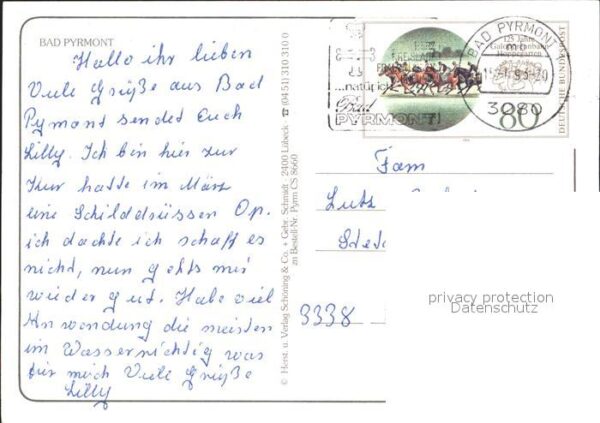 BAD PYRMONT
Hallo ihr lieben
Viele Grüße aus Bad
Pymont sendet Euch
Lilly. Ich bin hier zur
Kur hatte im März
eine Schilddrüssen Op.
ich dachte ich schaff es
nicht, nun gehts mir
wieder gut. Habe viel
Anwendung die meisten
im Wasser richtig was
für mich Viele Grüße
Lilly
© Horst. u. Verlag Schöning & Co. + Gebr. Schmidt · 2400 Lübeck ☎ (04 51) 310 310 0
zu Bestell-Nr. Pyrm CS 8660
125 Jahre
Galopprennbahn
Hoppegarten
DEUTSCHE BUNDESPOST
80
BAD PYRMONT
mb
3280
...natürlich
Bad
PYRMONT!
Fam
Lutz
3338
privacy protection
Datenschutz